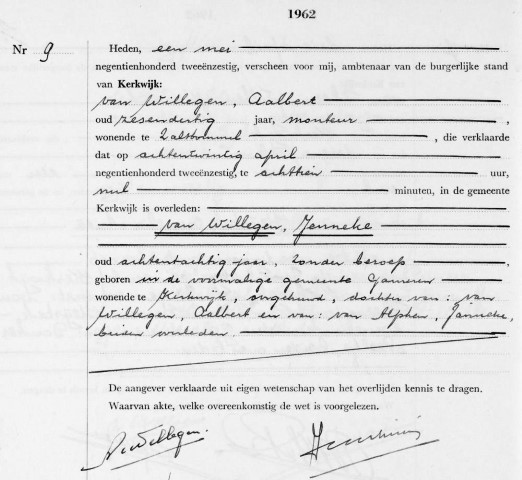 1962
Nr 9 Heden, een mei
negentienhonderd tweeënzestig, verscheen voor mij, ambtenaar van de burgerlijke stand
van Kerkwijk:
van Willegen, Aalbert
oud zesendertig jaar, monteur ,
wonende te Zaltbommel , die verklaarde
dat op achtentwintig april
negentienhonderd tweeënzestig, te achttien uur,
nul minuten, in de gemeente
Kerkwijk is overleden:
van Willegen, Jenneke
oud achtentachtig jaar, zonder beroep ,
geboren in de voormalige gemeente Gameren
wonende te Kerkwijk, ongehuwd, dochter van: van
Willegen, Aalbert en van: van Alphen, Janneke,
beiden overleden.
De aangever verklaarde uit eigen wetenschap van het overlijden kennis te dragen.
Waarvan akte, welke overeenkomstig de wet is voorgelezen.